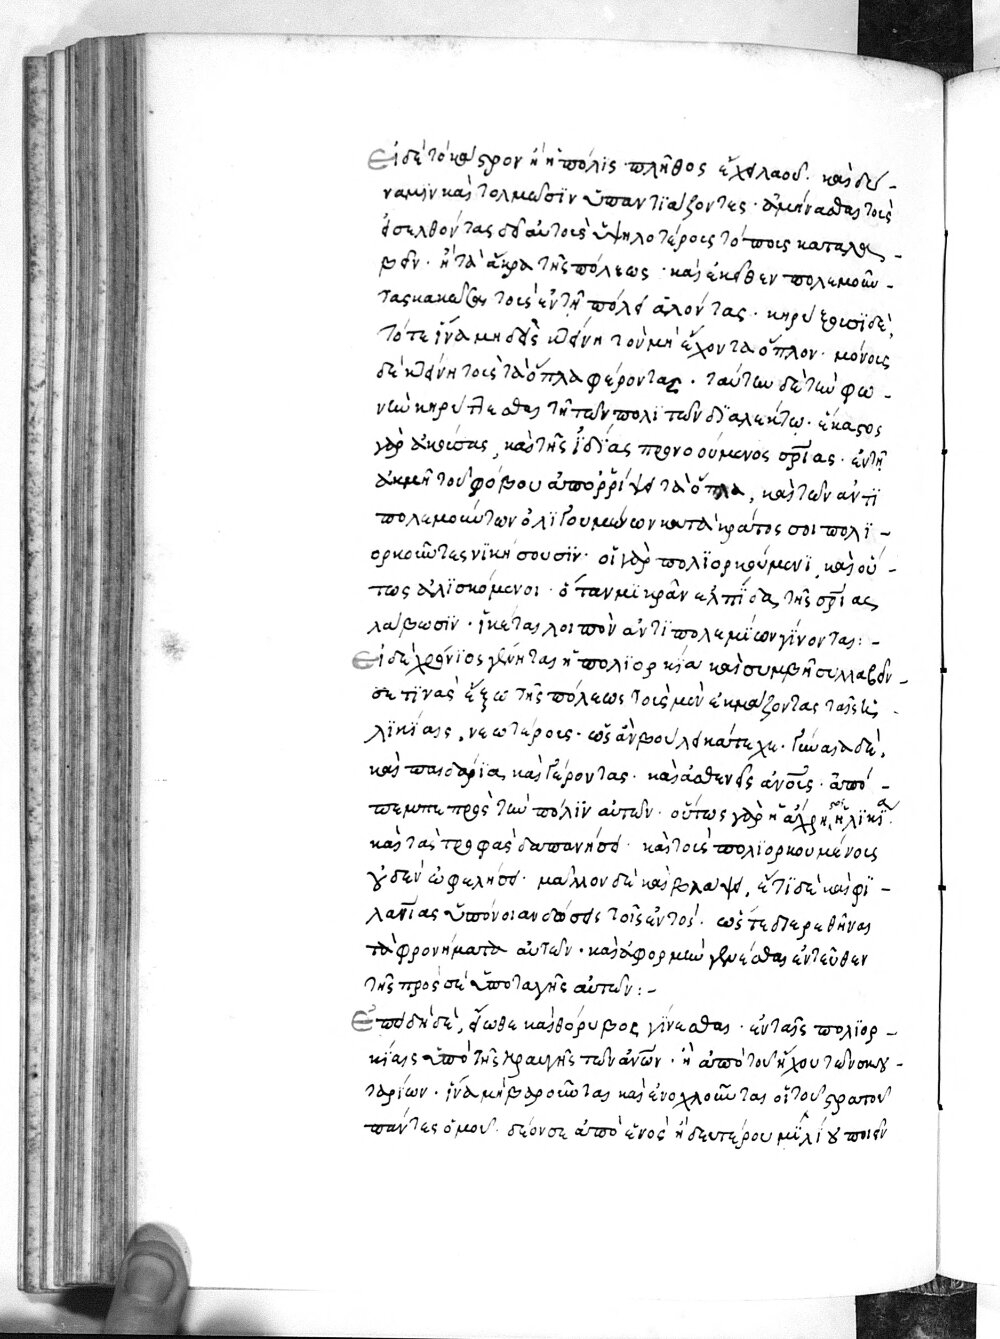 Εἰ δὲ τὸ κάστρον ἢ ἡ πόλις πλῆθος ἔχει λαοῦ· καὶ δύ-
ναμιν καὶ τολμῶσϊν ὑπαντϊάζοντες· ἀμήνασθαι τοὺς
εἰσελθόντας δι' αὐτοὺς ὑψηλοτέροις τόποις καταλα-
βεῖν· ἢ τὰ ἄκρα τῆς πόλεως· καὶ ἐκεῖθεν πολεμοῦν-
τας κακῶσαι τοὺς ἐν τῇ πόλει ἁλόντας· κηρυχθεῖσϊ δὲ,
τότε ἵνα μηδεὶς κτάνῃ τοῦ μὴ ἔχοντα ὅπλον· μόνους
δὲ κτάνῃ τοὺς τὰ ὅπλα φέροντας· ταύτην δὲ τὴν φω-
νὴν κηρύττεσθαι τῇ τῶν πολϊτῶν δϊαλέκτω· ἕκαστος
γὰρ ἀκούσας, καὶ τῆς ἰδίας προνοούμενος σωτηρίας· ἐν τῇ
ἀκμῇ τοῦ φόβου ἀπορρίψει τὰ ὅπλα, καὶ τῶν ἀντϊ
πολεμούντων ὀλϊγουμένων κατὰ κράτος οἱ πολϊ-
ορκοῦντες νϊκήσουσϊν· οἱ γὰρ πολϊορκούμενϊ, καὶ οὕ-
τως ἁλϊσκόμενοι· ὅταν μϊκρὰν ἐλπίδα τῆς σωτηρίας
λάβωσϊν· ἱκέται λοιπὸν ἀντϊ πολεμίων γίνονται:-
Εἰ δὲ χρόνϊος γένηται ἡ πολϊορκία καὶ συμβῇ συλλαβεῖν
σε τϊνὰς ἔξω τῆς πόλεως τοὺς μὲν ἐκμάζοντας ταῖς ἡ-
λϊκίαις, νεωτέροις· ὡς ἂν βούλει κάτεχε· γύναια δὲ,
καὶ παιδάρϊα, καὶ γέροντας· καὶ ἀσθενεῖς ἀνους· ἀπό-
πεμπε πρὸς τὴν πόλϊν αὐτῶν· οὕτως γὰρ ἡ ἄχρηστος ἡλϊκία
καὶ τὰς τροφὰς δαπανήσει· καὶ τοὺς πολϊορκουμένους
οὐδὲν ὠφελήσει· μᾶλλον δὲ καὶ βλάψει, ἔτϊ δὲ καὶ φϊ-
λανίας ὑπόνοιαν δώσεις τοῖς ἐντός· ὥστε διερεθῆναι
τὰ φρονήματα αὐτῶν· καὶ ἀφορμὴν γενέσθαι ἐντεῦθεν
τῆς πρός σὲ ὑποταγῆς αὐτῶν:-
Ἐπειδὴ δὲ, εἴωθε καὶ θόρυβος γίνεσθαι· ἐν ταῖς πολϊορ-
κίαις ὑπὸ τῆς κραυγῆς τῶν ἀνων· ἢ ἀπὸ τοῦ ἤχου τῶν σκου-
ταρίων· ἵνα μὴ βαροῦνται καὶ ἐνοχλοῦνται οἱ τοῦ στρατοῦ
πάντες ὁμοῦ· δέον σε ἀπὸ ἑνὸς ἢ δευτέρου μϊλίου ποιεῖν